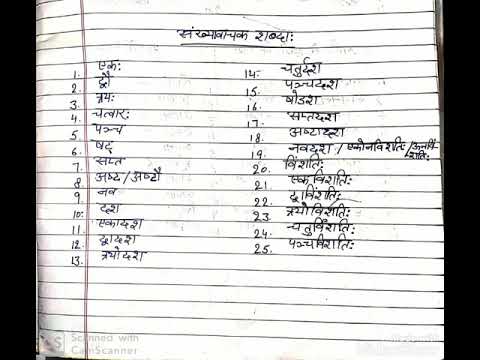 संख्यावाचक शब्दाः
1. एकः
2. द्वौ
3. त्रयः
4. चत्वारः
5. पञ्च
6. षट्
7. सप्त
8. अष्ट/अष्टौ
9. नव
10. दश
11. एकादश
12. द्वादश
13. त्रयोदश
14. चतुर्दश
15. पञ्चदश
16. षोडश
17. सप्तदश
18. अष्टादश
19. नवदश / एकोनविंशतिः /ऊनविंशतिः
20. विंशतिः
21. एकविंशतिः
22. द्वाविंशतिः
23. त्रयोविंशतिः
24. चतुर्विंशतिः
25. पञ्चविंशतिः
CS Scanned with
CamScanner